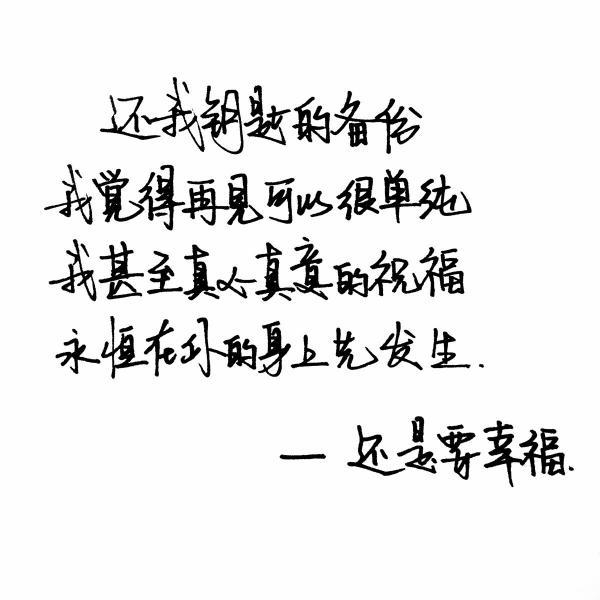 还我钥匙的备份
我觉得再见可以很单纯
我甚至真心真意的祝福
永恒在你的身上先发生.
— 还是要幸福.